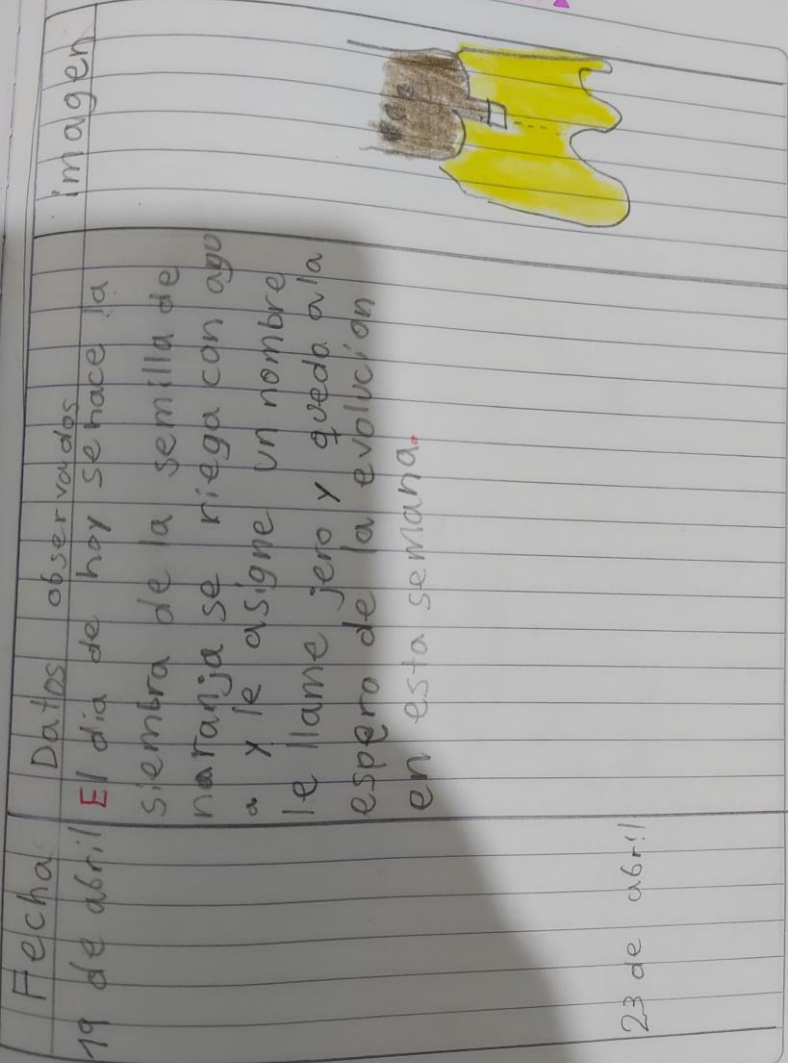 Fecha Datos observados imagen
19 de abril El dia de hoy se hace la
siembra de la semilla de
naranja se riega con agu
a y le asigne un nombre
le llame jero y quedo a la
espera de la evolución
en esta semana.
23 de abril